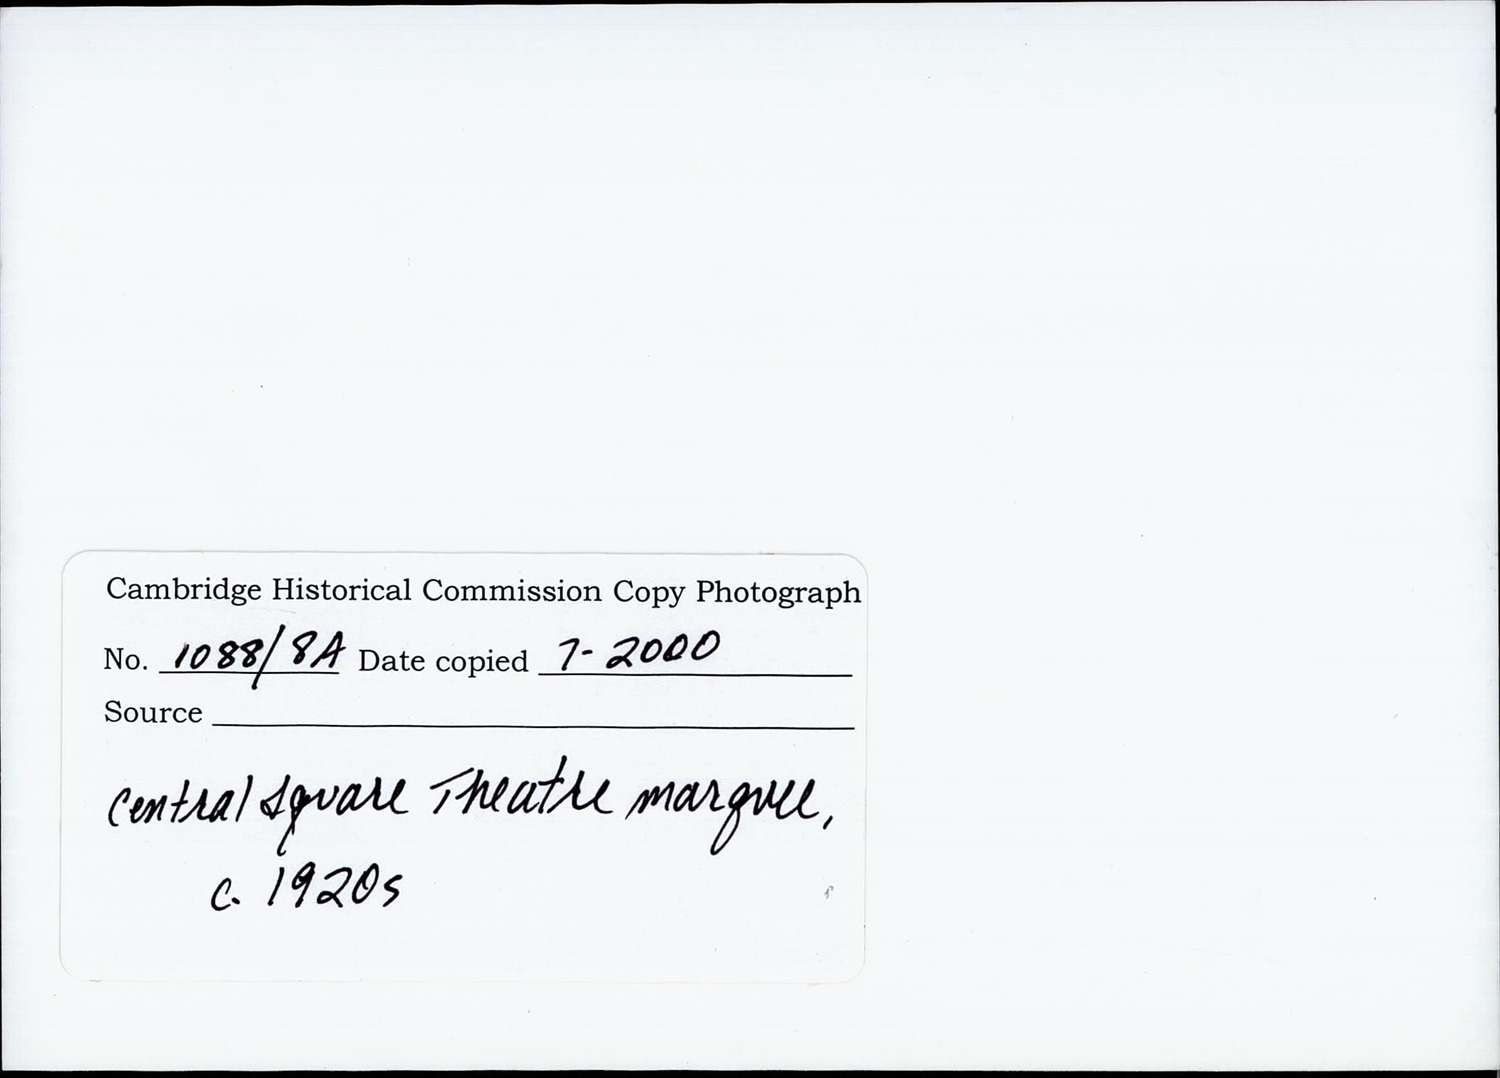 Cambridge Historical Commission Copy Photograph
No. 1088/8A Date copied 7-2000
Source
Central Square Theatre marquee,
c. 1920s